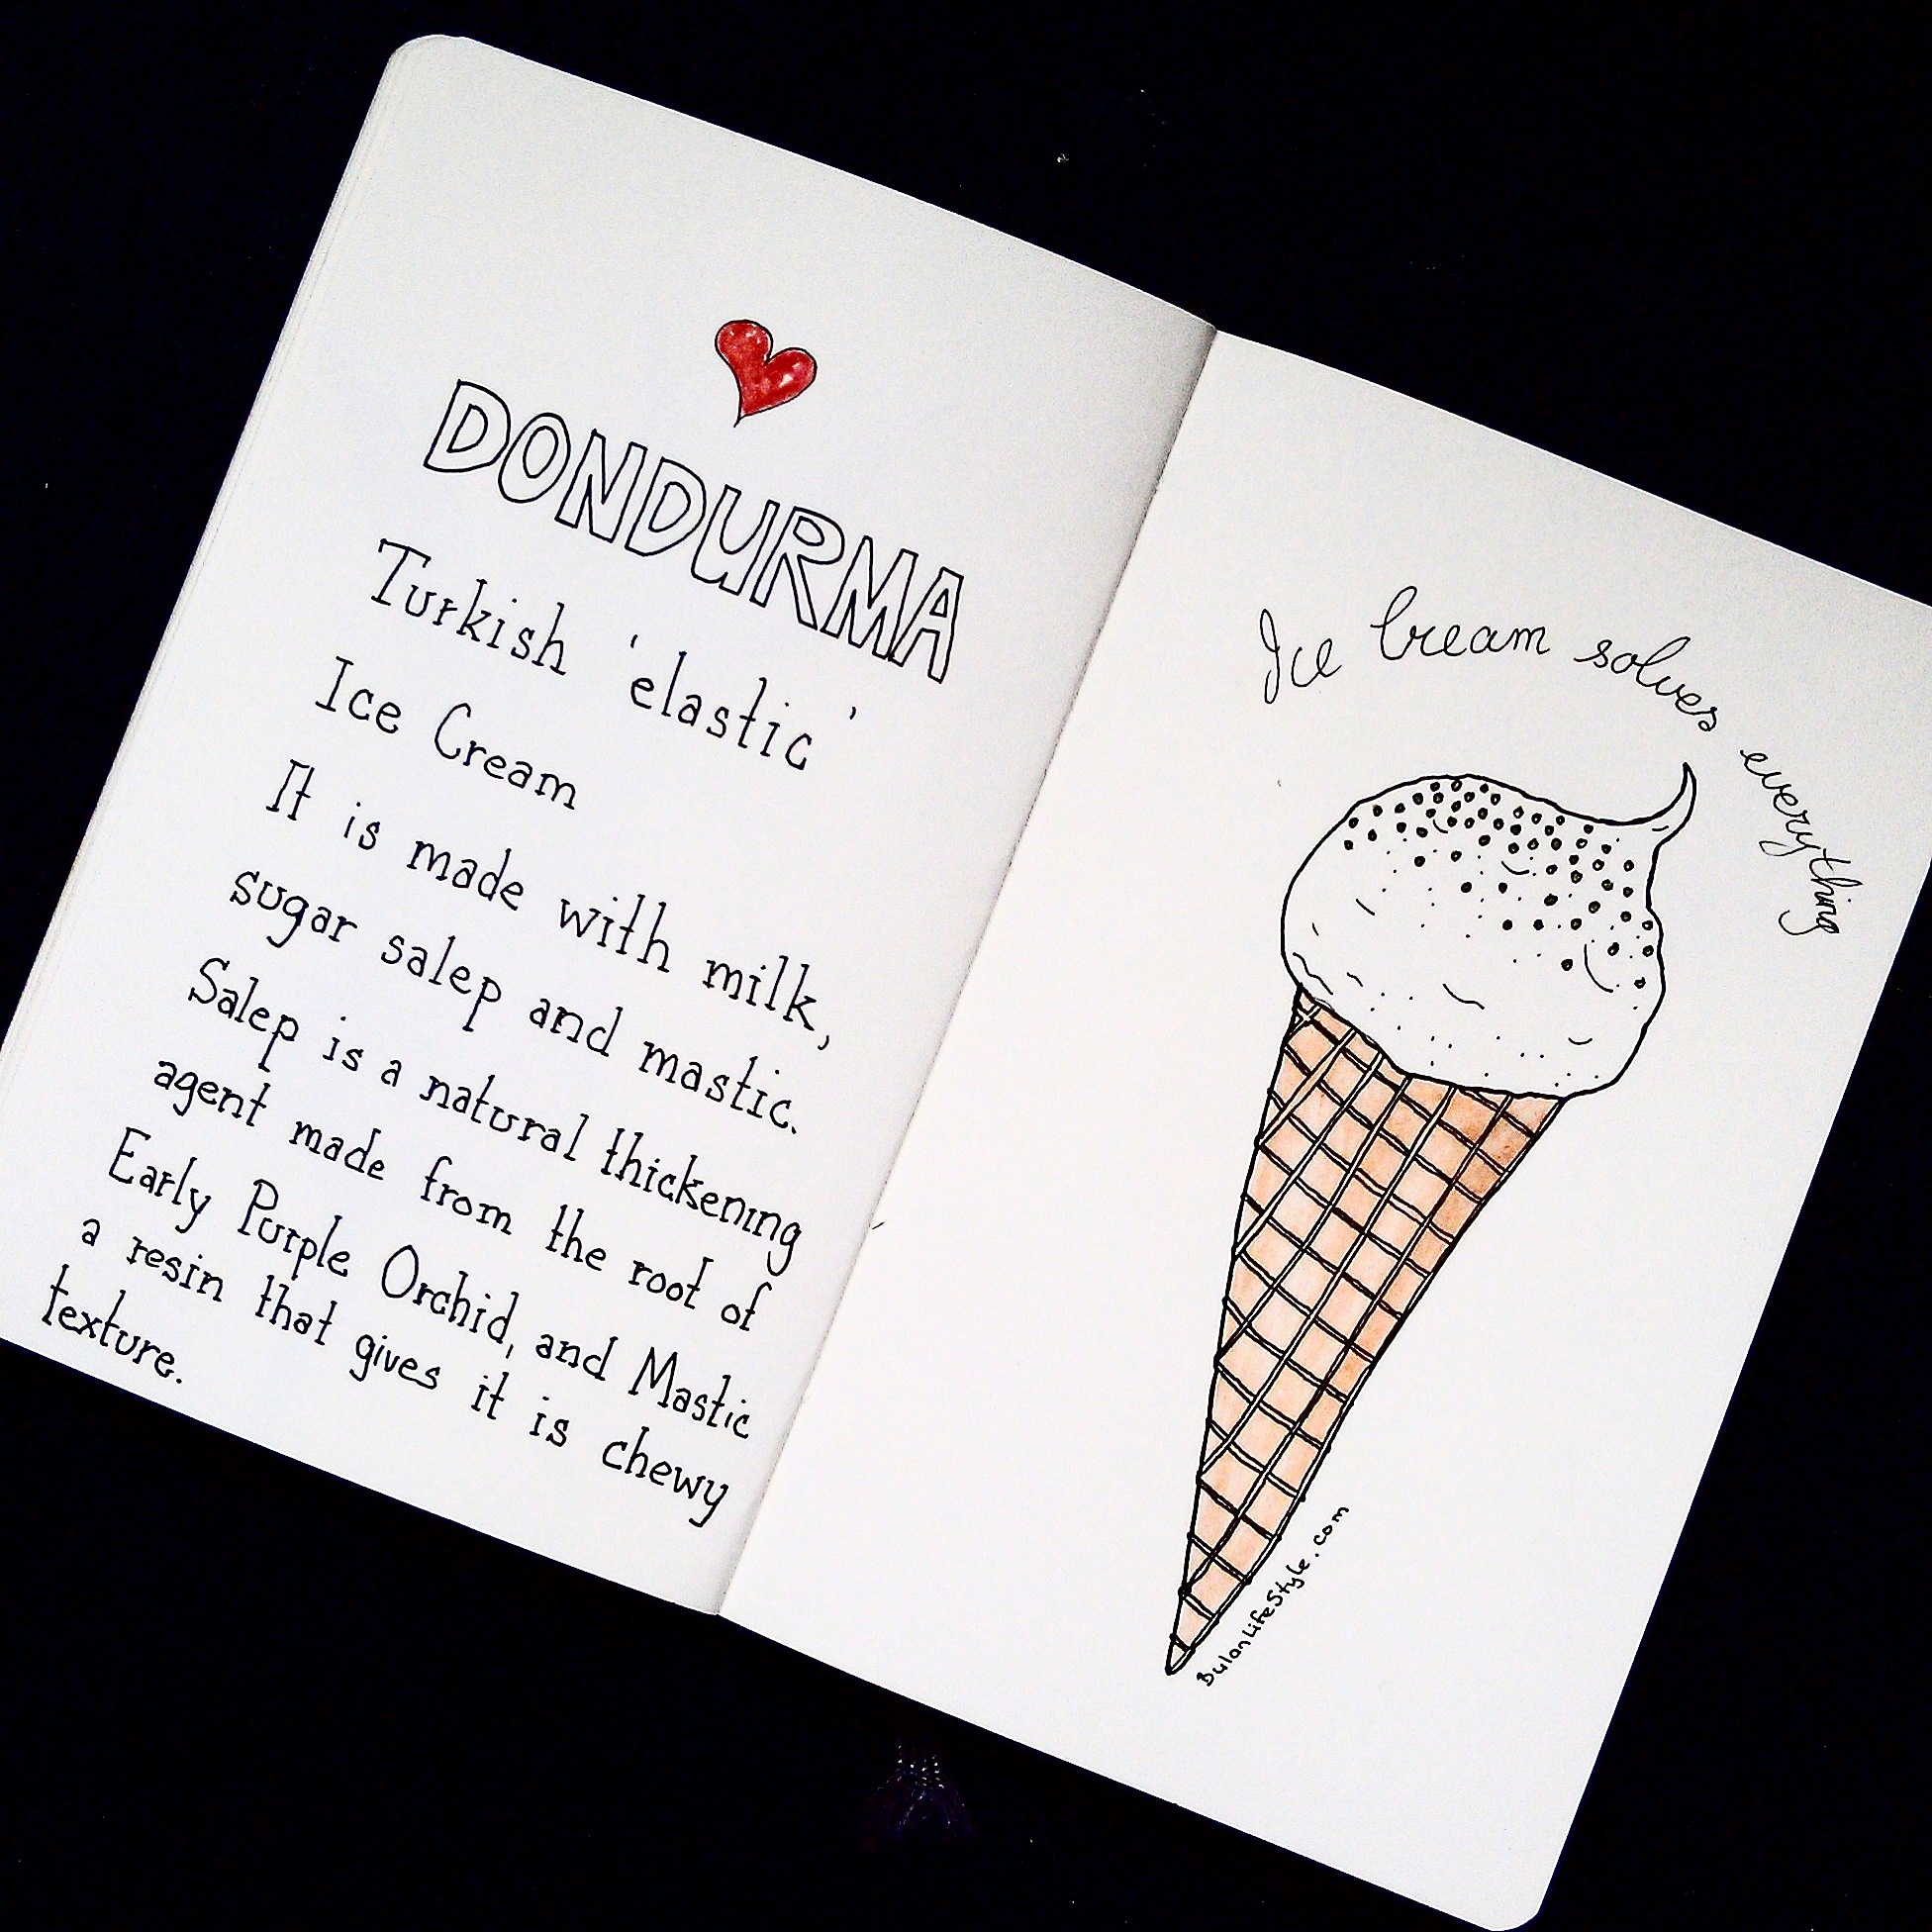 DONDURMA
Turkish 'elastic'
Ice Cream
It is made with milk,
sugar salep and mastic.
Salep is a natural thickening
agent made from the root of
Early Purple Orchid, and Mastic
a resin that gives it is chewy
texture.
Ice cream solves everything
BulanLifeStyle.com